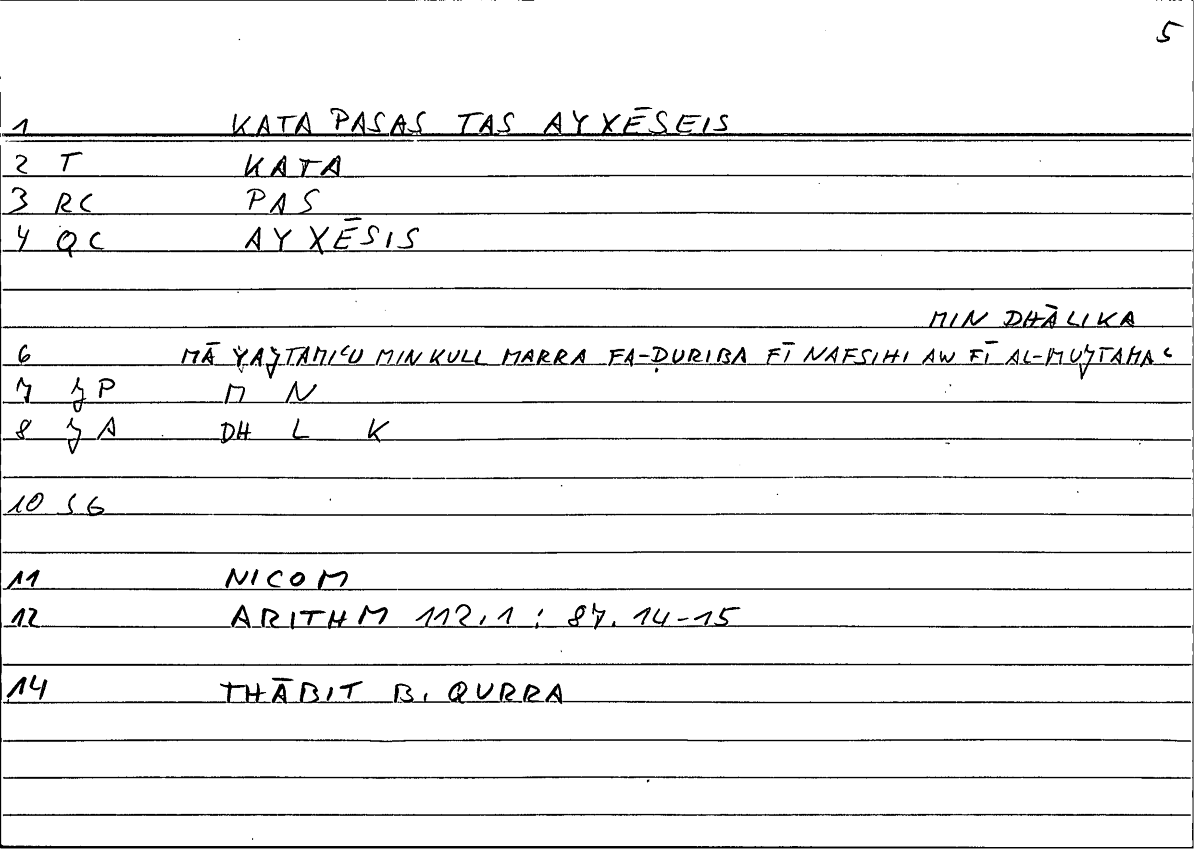 5
1 KATA PASAS TAS AYXĒSEIS
2 T KATA
3 RC PAS
4 QC AYXĒSIS
MIN DHĀLIKA
6 MĀ YAJTAMIʿU MIN KULL MARRA FA-ḌURIBA FĪ NAFSIHI AW FĪ AL-MUJTAMAʿ
7 JP M N
8 JA DH L K
10 SG
11 NICOM
12 ARITHM 112.1 : 87.14-15
14 THĀBIT B. QURRA